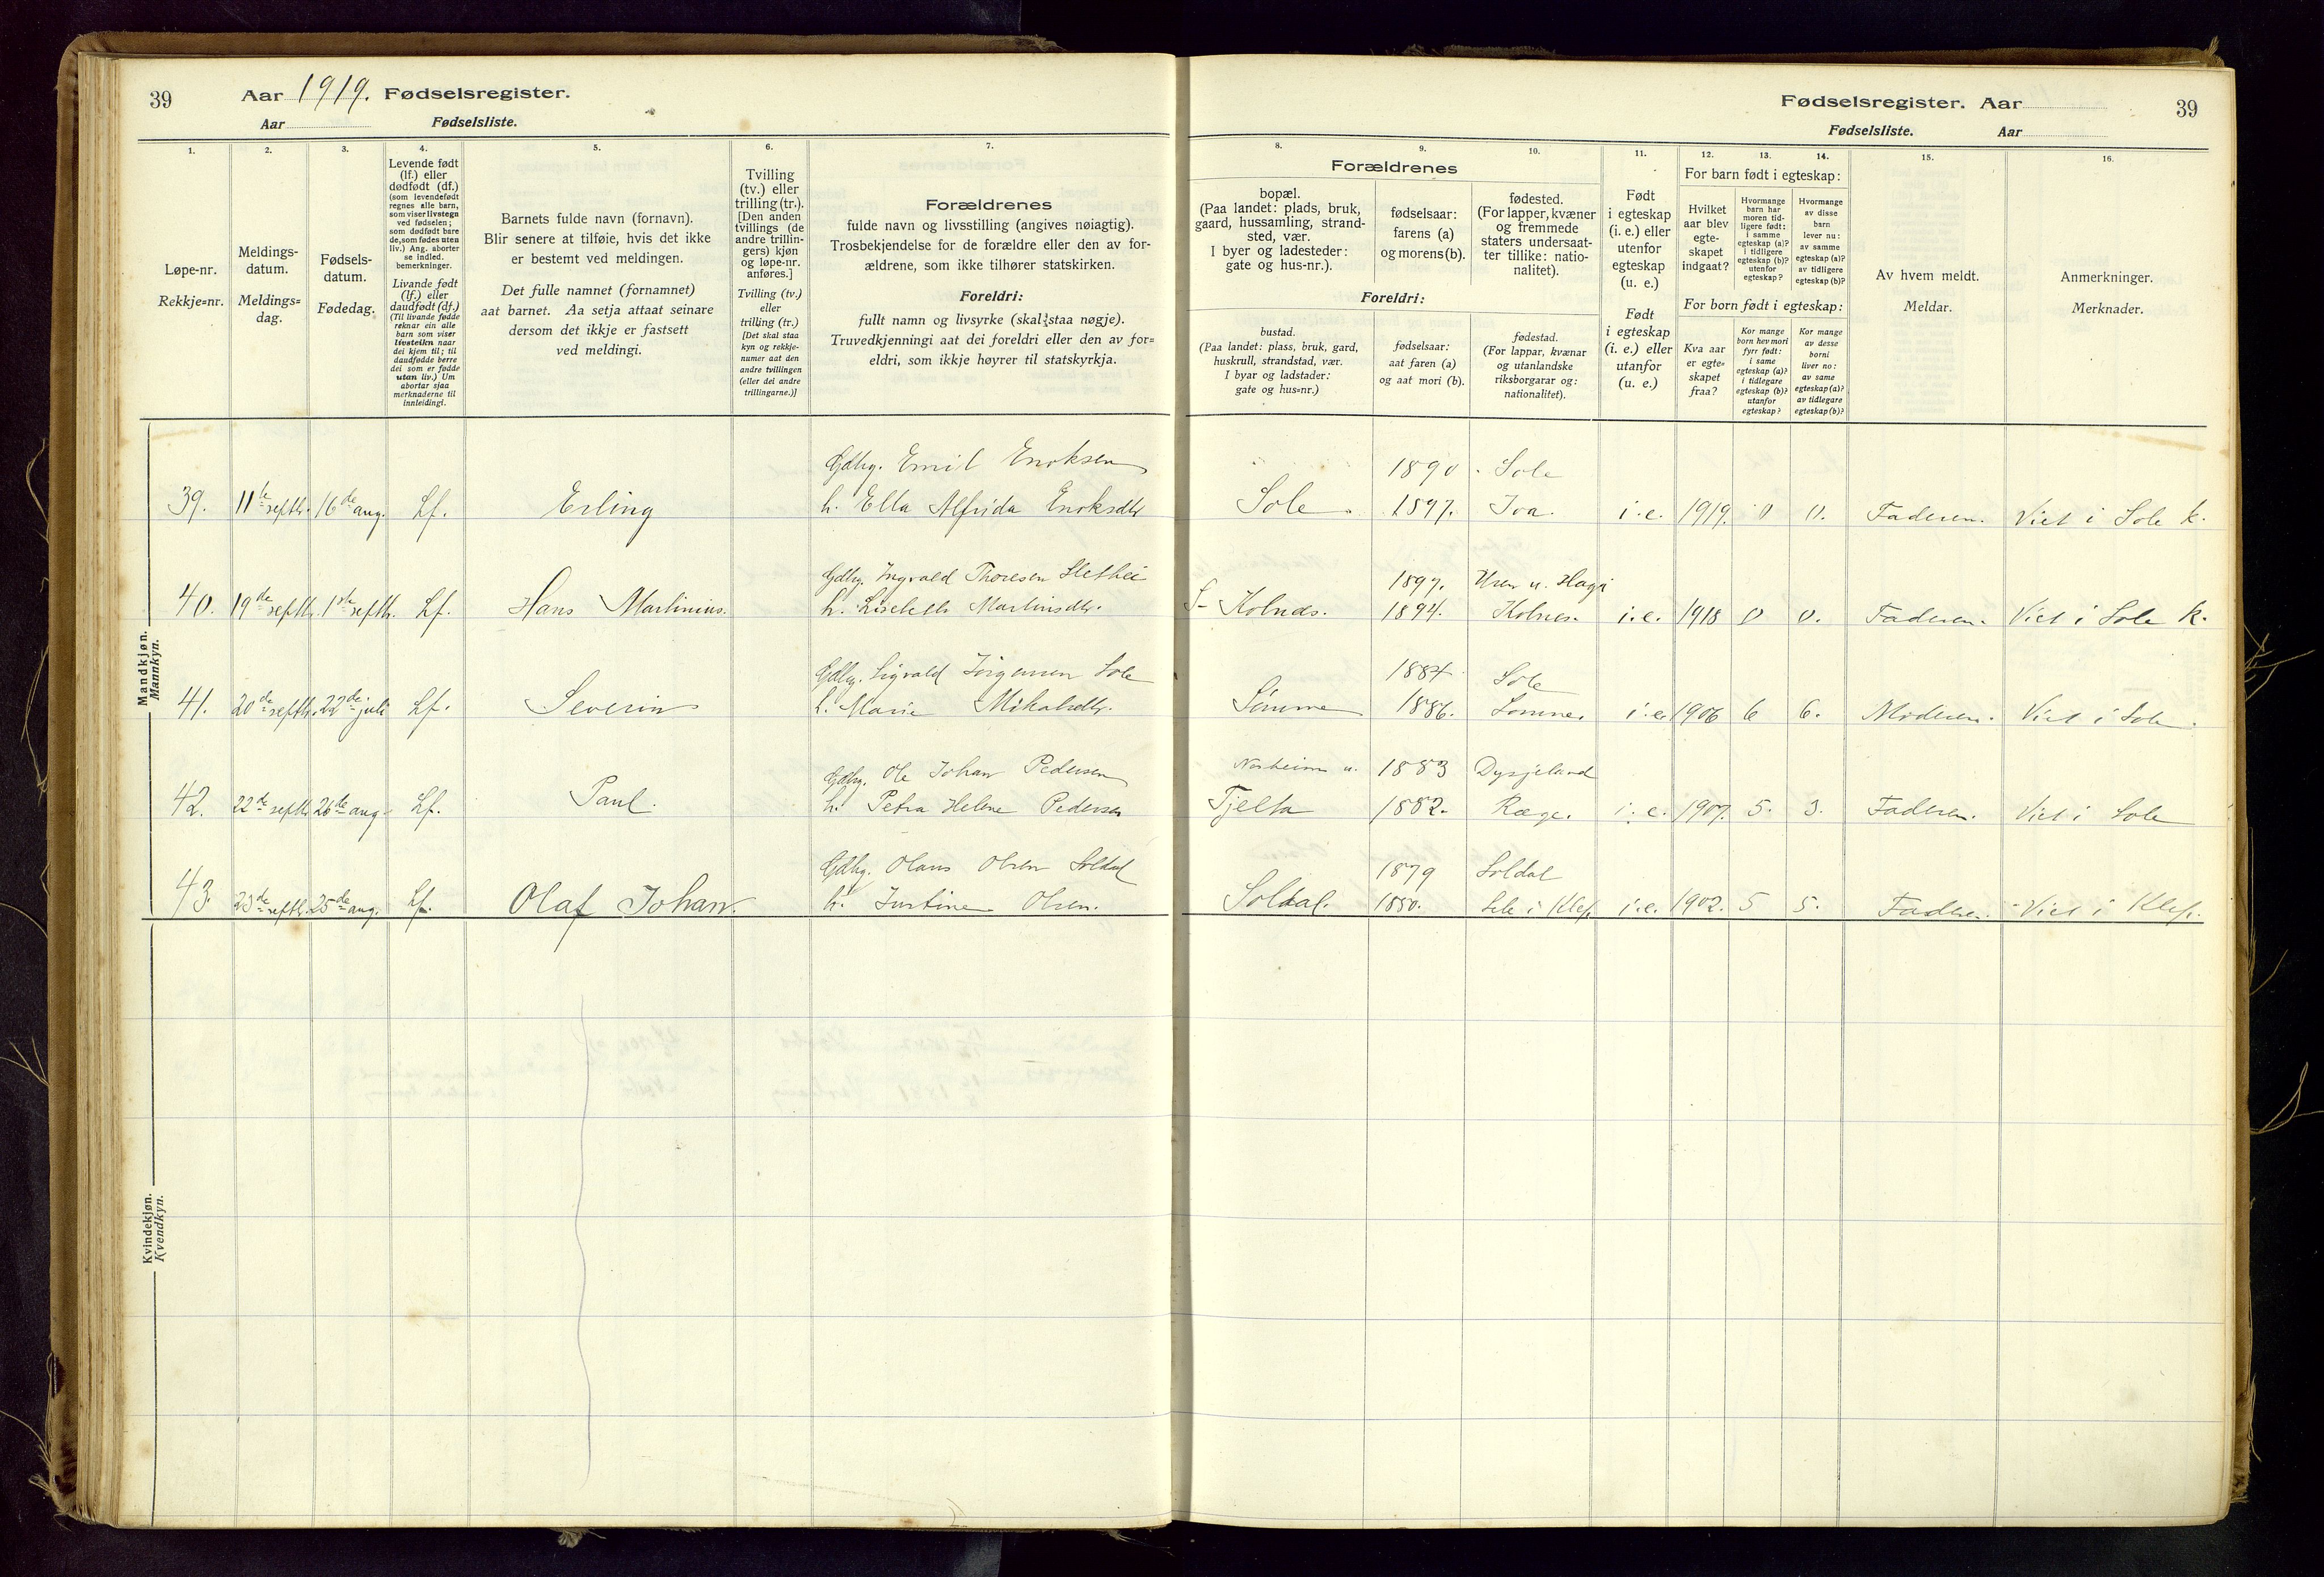 39
Aar 1919. Fødselsregister.
Aar Fødselsliste.
Fødselsregister. Aar
39
Fødselsliste. Aar
1.
Løpe-nr.
Rekkje=nr.
2.
Meldings-
datum.
Meldings=
dag.
3.
Fødsels-
datum.
Fødedag.
4.
Levende født
(lf.) eller
dødfødt (df.)
(som levendefødt
regnes alle barn,
som viser livstegn
ved fødselen;
som dødfødt bare
de, som fødes uten
liv.) Ang. aborter
se indled.
bemerkninger.
Livande født
(lf.) eller
daudfødt (df.)
(Til livande fødde
reknar ein alle
barn som viser
livsteikn naar
dei kjem til; til
daudfødde berre
dei som er fødde
utan liv.) Um
abortar sjaa
merknaderne til
innleidingi.
5.
Barnets fulde navn (fornavn).
Blir senere at tilføie, hvis det ikke
er bestemt ved meldingen.
Det fulle namnet (fornamnet)
aat barnet. Aa setja attaat seinare
dersom det ikkje er fastsett
ved meldingi.
6.
Tvilling
(tv.) eller
trilling (tr.).
[Den anden
tvillings (de
andre trillin-
gers) kjøn
og løpe-nr.
anføres.]
Tvilling (tv.)
eller
trilling (tr.)
[Det skal staa
kyn og rekkje-
numer aat den
andre tvillingen
(eller dei andre
trillingarne.)]
7.
Forældrenes
fulde navn og livsstilling (angives nøiagtig).
Trosbekjendelse for de forældre eller den av for-
ældrene, som ikke tilhører statskirken.
Foreldri:
fullt namn og livsyrke (skal staa nøgje).
Truvedkjenningi aat dei foreldri eller den av for=
eldri, som ikkje høyrer til statskyrkja.
8.
Forældrenes
bopæl.
(Paa landet: plads, bruk,
gaard, hussamling, strand-
sted, vær.
I byer og ladesteder:
gate og hus-nr.).
Foreldri:
bustad.
(Paa landet: plass, bruk, gard,
huskrull, strandstad, vær.
I byar og ladstader:
gate og hus=nr.)
9.
fødselsaar:
farens (a)
og morens (b).
fødselsaar:
aat faren (a)
og aat mori (b).
10.
fødested.
(For lapper, kvæner
og fremmede
staters undersaat-
ter tillike: natio-
nalitet).
fødestad.
(For lappar, kvænar
og utanlandske
riksborgarar og:
nationalitet).
11.
Født
i egteskap
(i. e.) eller
utenfor
egteskap
(u. e.)
Født
i egteskap
(i. e.) eller
utanfor
(u. e.)
12. 13. 14.
For barn født i egteskap:
Hvilket
aar blev
egte-
skapet
indgaat?
Hvormange
barn har
moren tid-
ligere født:
i samme
egteskap (a)?
i tidligere
egteskap (b)?
utenfor
egteskap?
Hvormange
av disse
barn
lever nu:
av samme
egteskap (a)?
av tidligere
egteskap (b)?
For born født i egteskap:
Kva aar
er egte=
skapet
fraa?
Kor mange
born hev mori
fyrr født:
i same
egteskap (a)?
i tidlegare
egteskap (b)?
utanfor
egteskap?
Kor mange
av desse
borni
liver no:
av same
egteskap (a)?
av tidlegare
egteskap (b)?
15.
Av hvem meldt.
Meldar.
16.
Anmerkninger.
Merknader.
Mandkjøn.
Mannkyn.
Gdbg. Emil Enoksen 1890 Sole
39. 11te septbr. 16de aug. Lf. Erling h. Ella Alfrida Enoksdtr Sole 1897. Joa. i.e. 1919. 0 0. Faderen. Viet i Sole k.
Gdbg. Ingvald Thoresen Slethei 1897. Hagi
40. 19de septbr. 1ste septbr. Lf. Hans Martinius. h. Lisebeth Martinsdtr. Kolnes. 1894. Kolnes. i.e. 1918 0 0. Faderen. Viet i Sole k.
Gdbg. Sigvald Jørgensen Sole 1884 Sole
41. 20de septbr. 22de juli Lf. Severin h. Marie Mikalsdtr. Sømme 1886. Sømme. i.e. 1906 6 6. Moderen. Viet i Sole.
Gdbg. Ole Johan Pedersen Norheim u. 1883 Dysjeland
42. 22de septbr. 26de aug. Lf. Paul. h. Petra Helene Pedersen Tjelta 1882. Ræge. i.e. 1907. 5. 3. Faderen. Viet i Sole
Gdbg. Olaus Olsen Soldal 1879 Soldal
43. 23de septbr. 25de aug. Lf. Olaf Johan. h. Justine Olsen. Soldal. 1880. i Klep. i.e. 1902. 5 5. Faderen. Viet i Klep.
Kvindekjøn.
Kvendkyn.